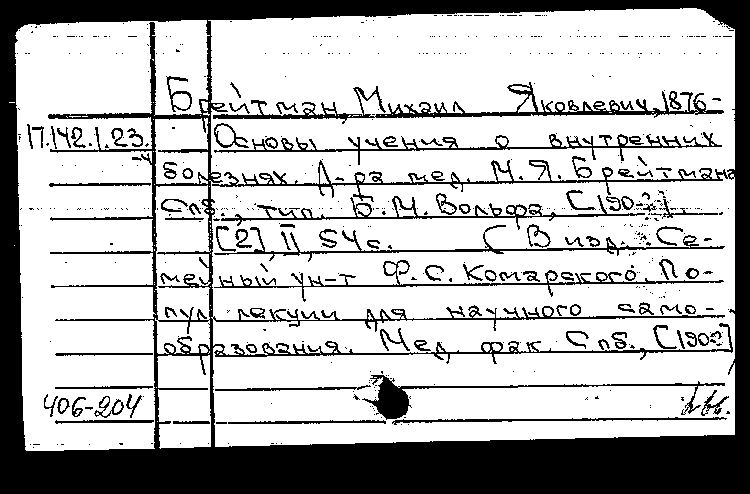 Брейтман, Михаил Яковлевич, 1876-
17.142.1.23. Основы учения о внутренних
болезнях. Д-ра мед. М.Я. Брейтмана
Спб., тип. Б.М. Вольфа, [190?].
[2], II, 54 с. (В изд.: Се-
мейный ун-т Ф.С. Комарского. По-
пул лекции для научного само-
образования. Мед. фак. Спб., [190?]
406-204